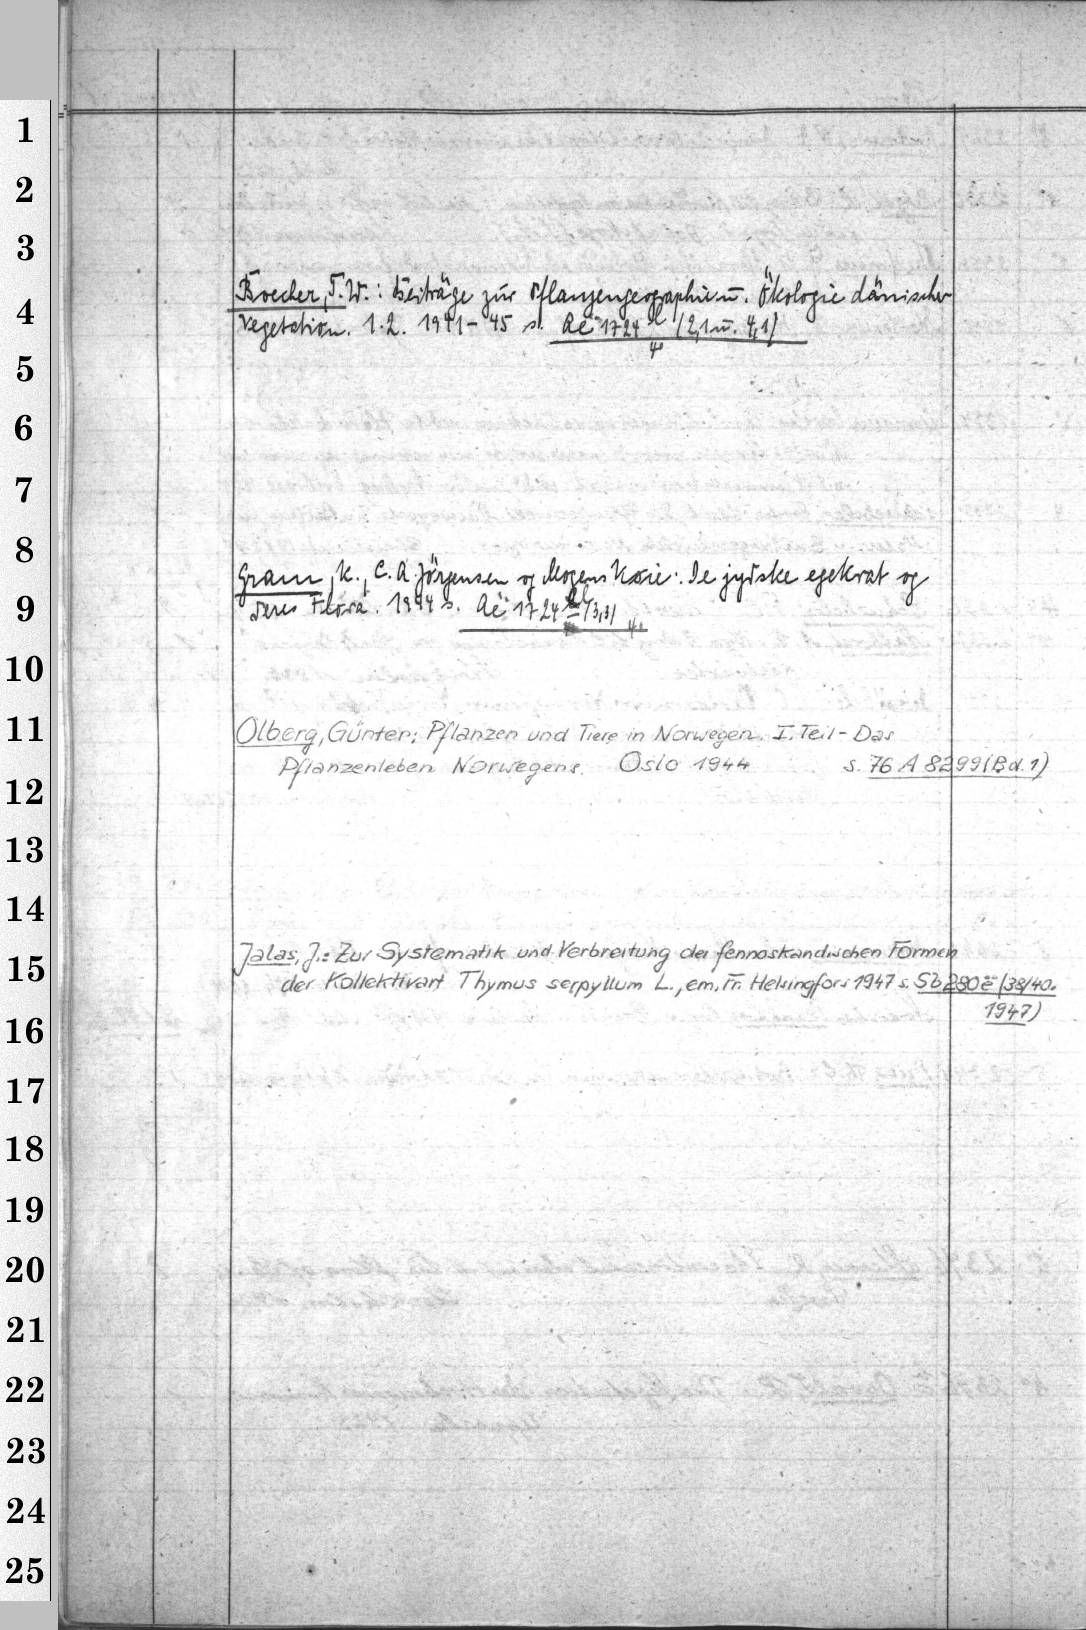 1
2
3
4
5
6
7
8
9
10
11
12
13
14
15
16
17
18
19
20
21
22
23
24
25
Boecher, T.W.: Beiträge zür Pflanzengeographie u. Ökologie dänischer
Vegetation. 1.2. 1941-45 s. Aë 1724 (2,1 u. 4,1)
4°
Gram, K., C.A. Jörgensen og Mogens Køie: De jydske egekrat og
deres Flora. 1944 s. Aë 1724 (3,3)
4°
Olberg, Günter: Pflanzen und Tiere in Norwegen. I. Teil - Das
Pflanzenleben Norwegens. Oslo 1944 s. 76 A 8299 (Bd. 1)
Jalas, J.: Zur Systematik und Verbreitung der fennoskandischen Formen
der Kollektivart Thymus serpyllum L., em. Fr. Helsingfors 1947 s. Sb 280 ë (38/40.
1947)